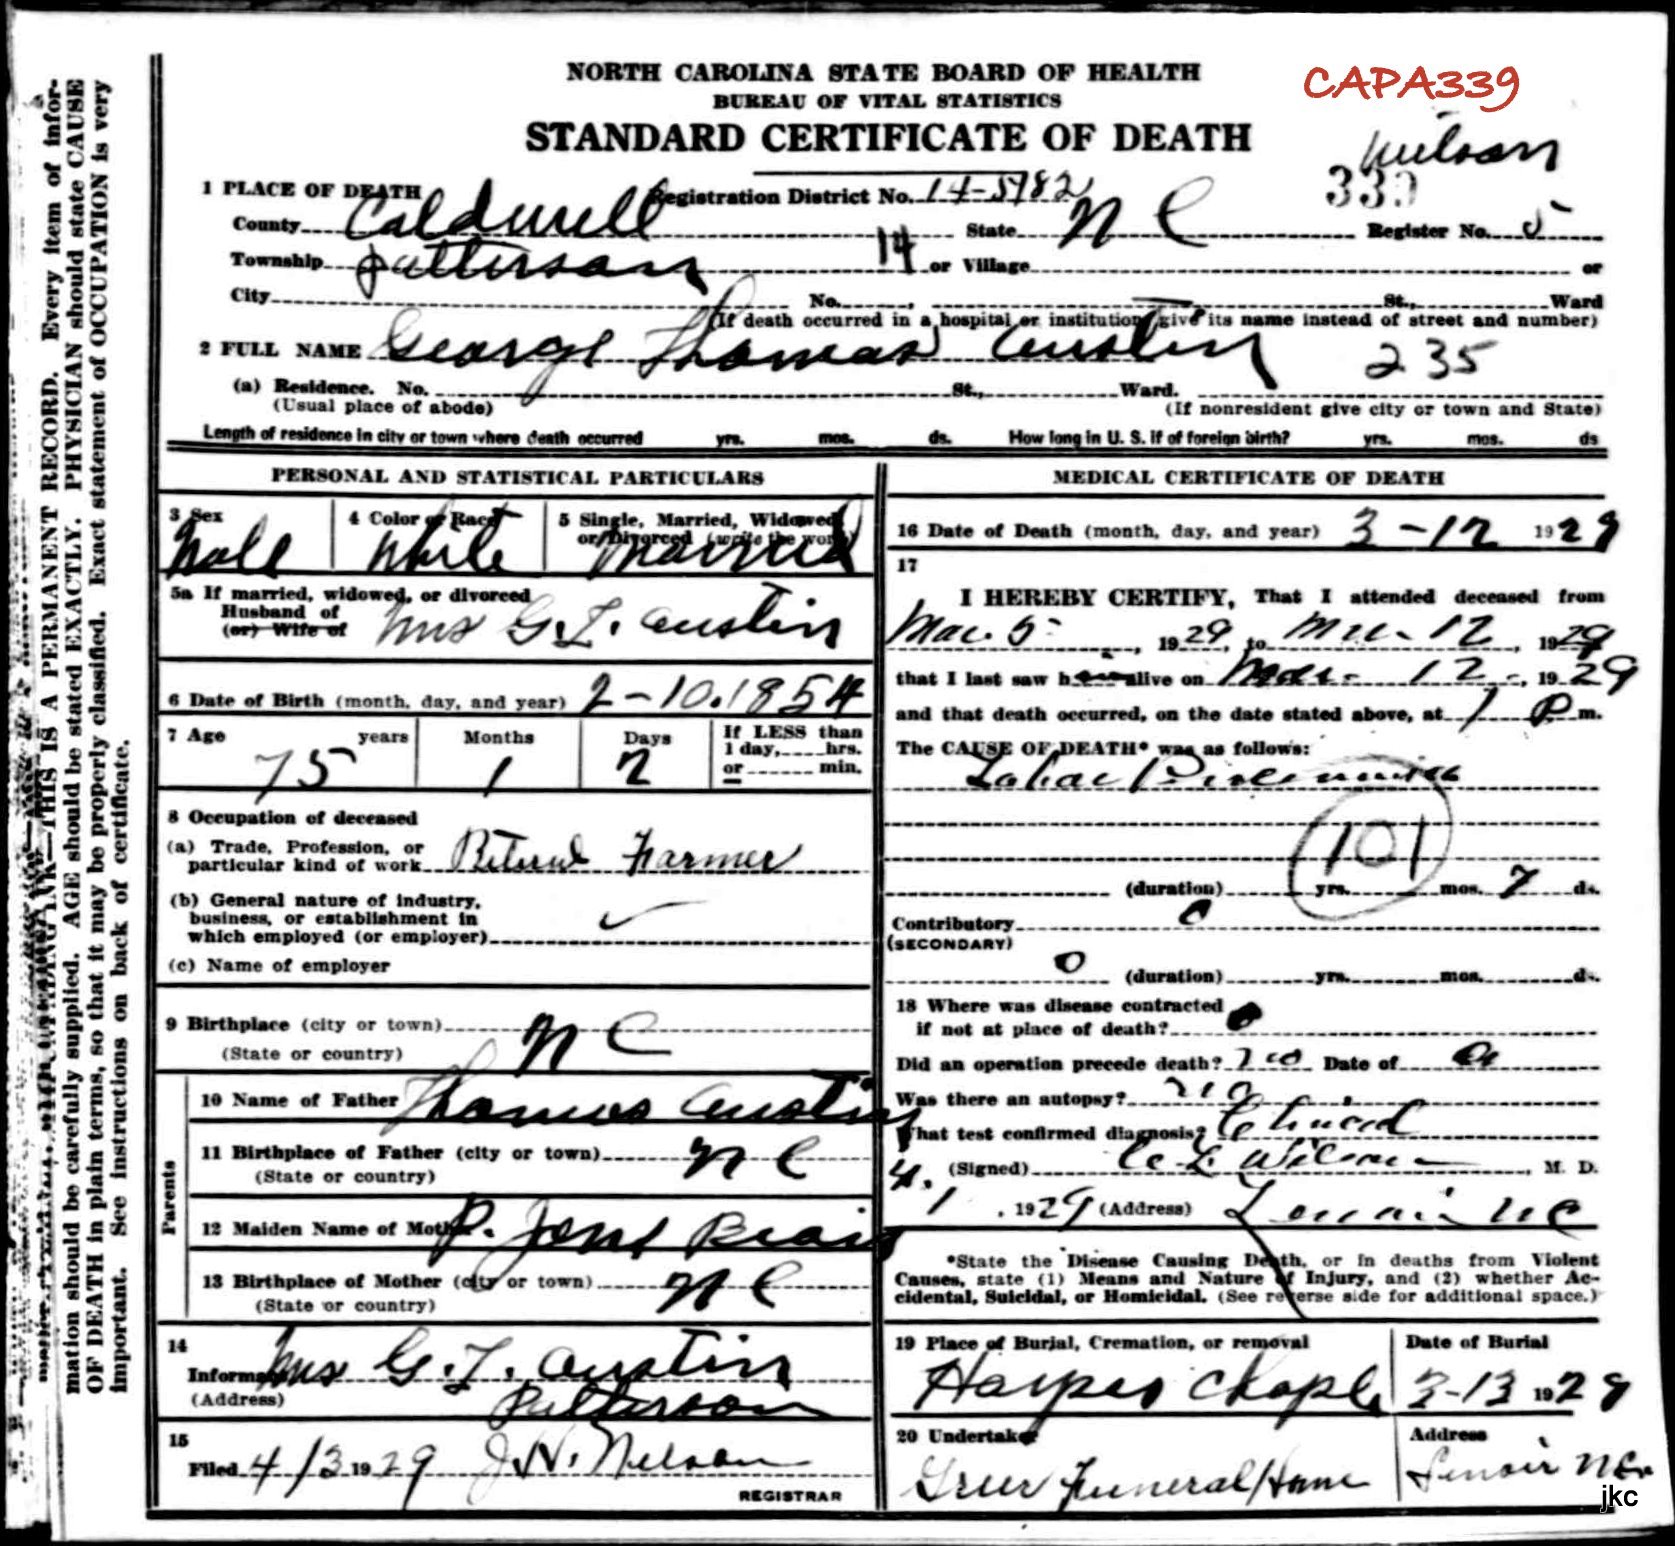 NORTH CAROLINA STATE BOARD OF HEALTH
CAPA339
BUREAU OF VITAL STATISTICS
STANDARD CERTIFICATE OF DEATH
Wilson
1 PLACE OF DEATH
Registration District No. 14-5782
339
County Caldwell State N C Register No. 5
Township Patterson 14 or Village or
City No. , St., Ward
(If death occurred in a hospital or institution give its name instead of street and number)
2 FULL NAME George Thomas Austin
235
(a) Residence. No. St., Ward.
(Usual place of abode) (If nonresident give city or town and State)
Length of residence in city or town where death occurred yrs. mos. ds. How long in U. S. if of foreign birth? yrs. mos. ds
PERSONAL AND STATISTICAL PARTICULARS
3 Sex 4 Color or Race 5 Single, Married, Widowed,
or Divorced (write the word)
Male White Married
5a If married, widowed, or divorced
Husband of
(or) Wife of Mrs G.T. Austin
6 Date of Birth (month, day, and year) 2-10.1854
7 Age years Months Days If LESS than
1 day, hrs.
or min.
75 1 2
8 Occupation of deceased
(a) Trade, Profession, or
particular kind of work Farmer
(b) General nature of industry,
business, or establishment in
which employed (or employer)
(c) Name of employer
9 Birthplace (city or town) N C
(State or country)
Parents
10 Name of Father Thomas Austin
11 Birthplace of Father (city or town) N C
(State or country)
12 Maiden Name of Mother P. Jane
13 Birthplace of Mother (city or town) N C
(State or country)
14
Informant Mrs G.T. Austin
(Address) Patterson
15
Filed 4/3 1929 J.H. Nelson
REGISTRAR
MEDICAL CERTIFICATE OF DEATH
16 Date of Death (month, day, and year) 3-12 1929
17
I HEREBY CERTIFY, That I attended deceased from
Mar. 5 , 1929, to Mar. 12 , 1929
that I last saw h alive on Mar. 12 , 19 29
and that death occurred, on the date stated above, at 1 P. m.
The CAUSE OF DEATH* was as follows:
Lobar Pneumonia
101
(duration) yrs. mos. 7 ds.
Contributory 0
(SECONDARY)
0 (duration) yrs. mos. ds.
18 Where was disease contracted
if not at place of death? 0
Did an operation precede death? no Date of 0
Was there an autopsy? no
What test confirmed diagnosis? Clinical
(Signed) Wilson , M. D.
4. 1 , 1929 (Address) Lenoir NC
*State the Disease Causing Death, or in deaths from Violent
Causes, state (1) Means and Nature of Injury, and (2) whether Ac-
cidental, Suicidal, or Homicidal. (See reverse side for additional space.)
19 Place of Burial, Cremation, or removal Date of Burial
Harpers Chapel 3-13 1929
20 Undertaker Address
Greer Funeral Home Lenoir N C
jkc
THIS IS A PERMANENT RECORD. Every item of infor-
mation should be carefully supplied. AGE should be stated EXACTLY. PHYSICIAN should state CAUSE
OF DEATH in plain terms, so that it may be properly classified. Exact statement of OCCUPATION is very
important. See instructions on back of certificate.